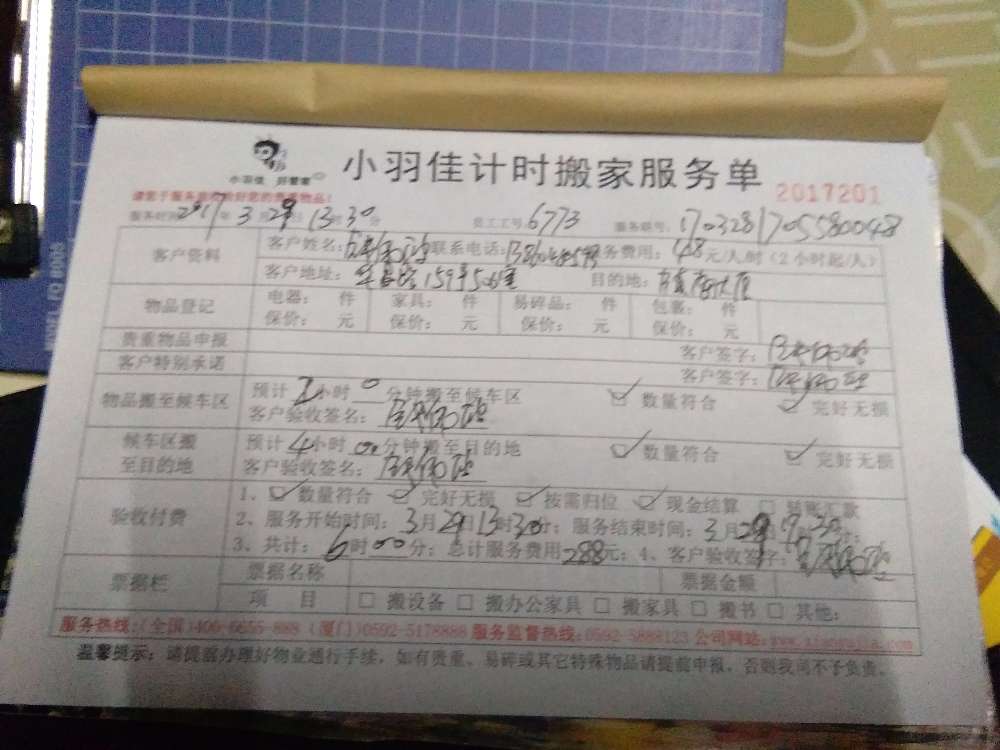 小羽佳 好管家
小羽佳计时搬家服务单
2017201
服务时间 2017年 3月 29日 13时30分 员工工号:6773 服务账号: 17032817055800048
客户资料 客户姓名: 联系电话: 服务费用:48元/人/时(2小时起/人)
客户地址: 159号506室 目的地:
物品登记 电器: 件 家具: 件 易碎品: 件 包裹: 件
保价: 元 保价: 元 保价: 元 保价: 元
贵重物品申报 客户签字:
客户特别承诺 客户签字:
物品搬至候车区 预计2小时0分钟搬至候车区 数量符合 完好无损
客户验收签名:
候车区搬至目的地 预计4小时00分钟搬至目的地 数量符合 完好无损
客户验收签名:
验收付费 1、数量符合 完好无损 按需归位 现金结算 转账汇款
2、服务开始时间:3月29日13时30分;服务结束时间:3月29日19时30分;
3、共计:6时00分;总计服务费用288元;4、客户验收签字:
票据栏 票据名称 票据金额
项 目 □ 搬设备 □ 搬办公家具 □ 搬家具 □ 搬书 □ 其他:
服务热线:(全国)400-6655-888 (厦门)0592-5178888 服务监督热线:0592-5888123 公司网站:
温馨提示:请提前办理好物业通行手续,如有贵重、易碎或其它特殊物品请提前申报,否则我司不予负责。